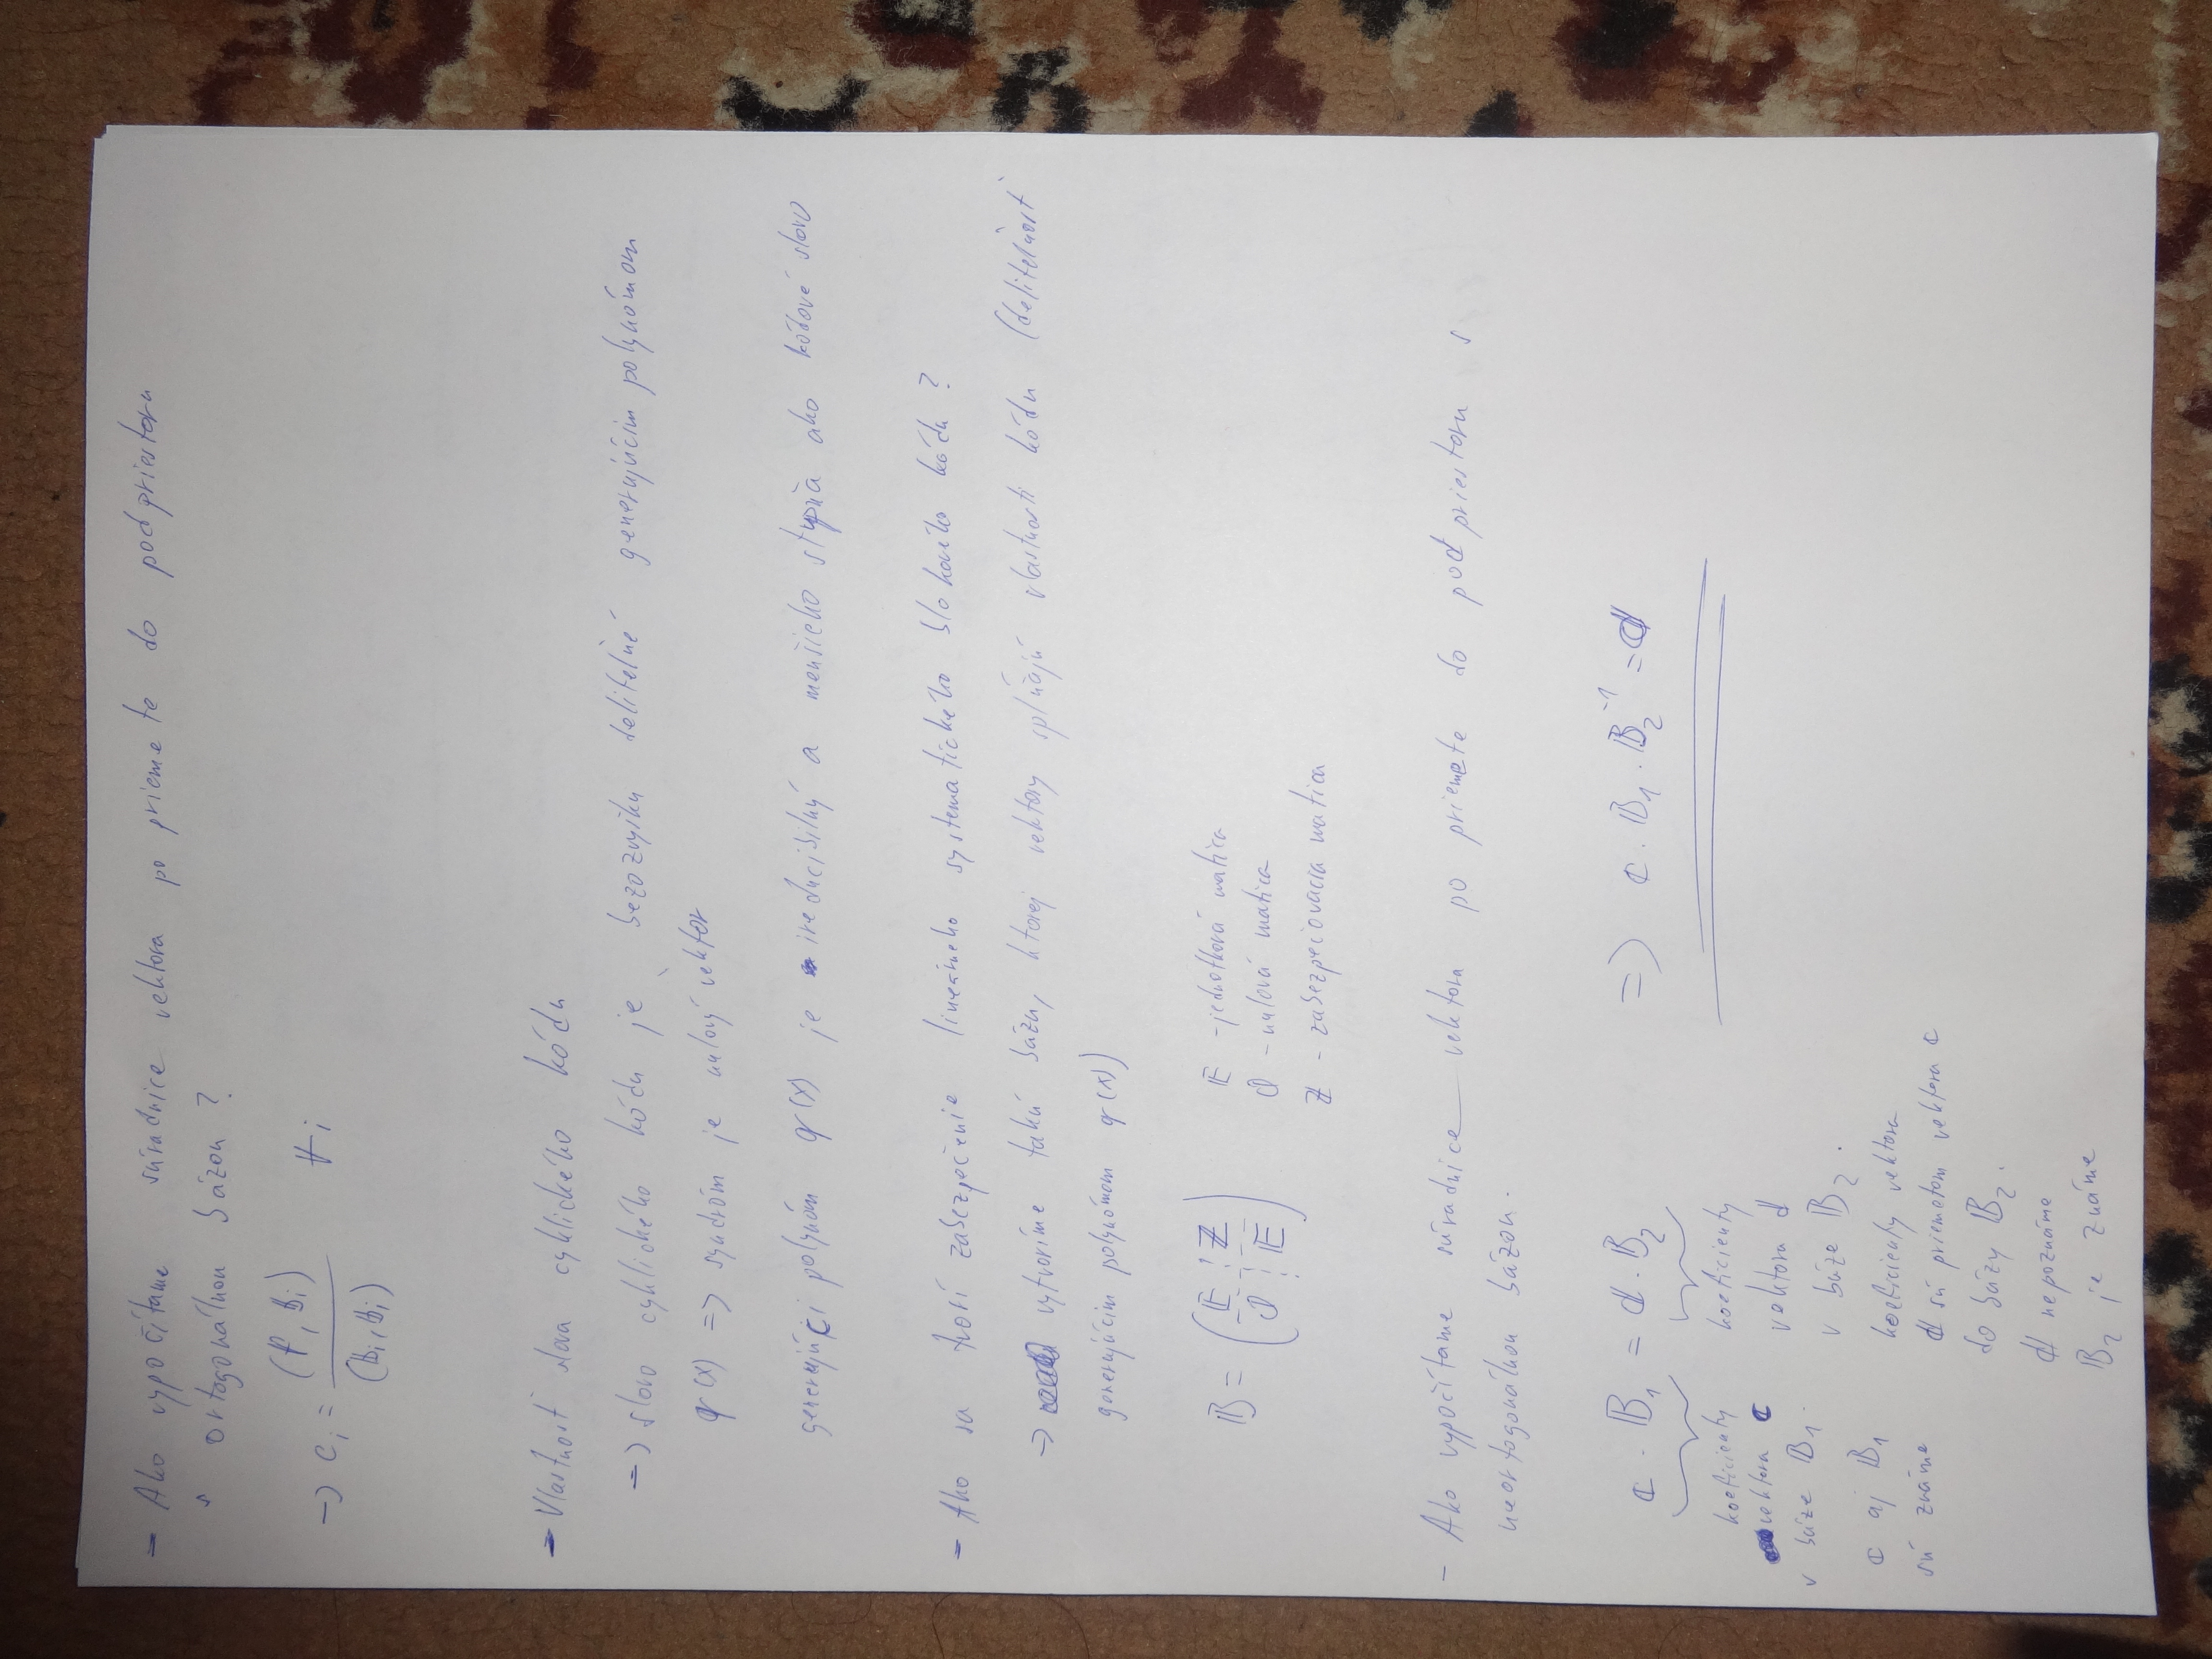 - Ako vypočítame súradnice vektora po priemete do podpriestoru
s ortogonálnou bázou ?
-> c_i = (f, b_i) / (b_i, b_i) ∀i
- Vlastnosť slova cyklického kódu
=> slovo cyklického kódu je bezozvyšku deliteľné generujúcim polynómom
g(x) => syndróm je nulový vektor
generujúci polynóm g(x) je ireducibilný a menšieho stupňa ako kódové slovo
- Ako sa tvorí zabezpečenie lineárneho systematického blokového kódu ?
-> vytvoríme takú bázu, ktorej vektory splňajú vlastnosti kódu (deliteľnosť
generujúcim polynómom g(x))
𝔹 = ( 𝔼 ¦ ℤ / 𝕆 ¦ 𝔼 )
𝔼 - jednotková matica
𝕆 - nulová matica
ℤ - zabezpečovacia matica
- Ako vypočítame súradnice vektora po priemete do podpriestoru s
neortogonálnou bázou.
𝕔 · 𝔹₁ = 𝕕 · 𝔹₂ => 𝕔 · 𝔹₁ · 𝔹₂⁻¹ = 𝕕
koeficienty
vektora 𝕔
v báze 𝔹₁.
𝕔 aj 𝔹₁
sú známe
koeficienty
vektora 𝕕
v báze 𝔹₂.
koeficienty vektora
𝕕 sú priemetom vektora 𝕔
do bázy 𝔹₂.
𝕕 nepoznáme
𝔹₂ je známe